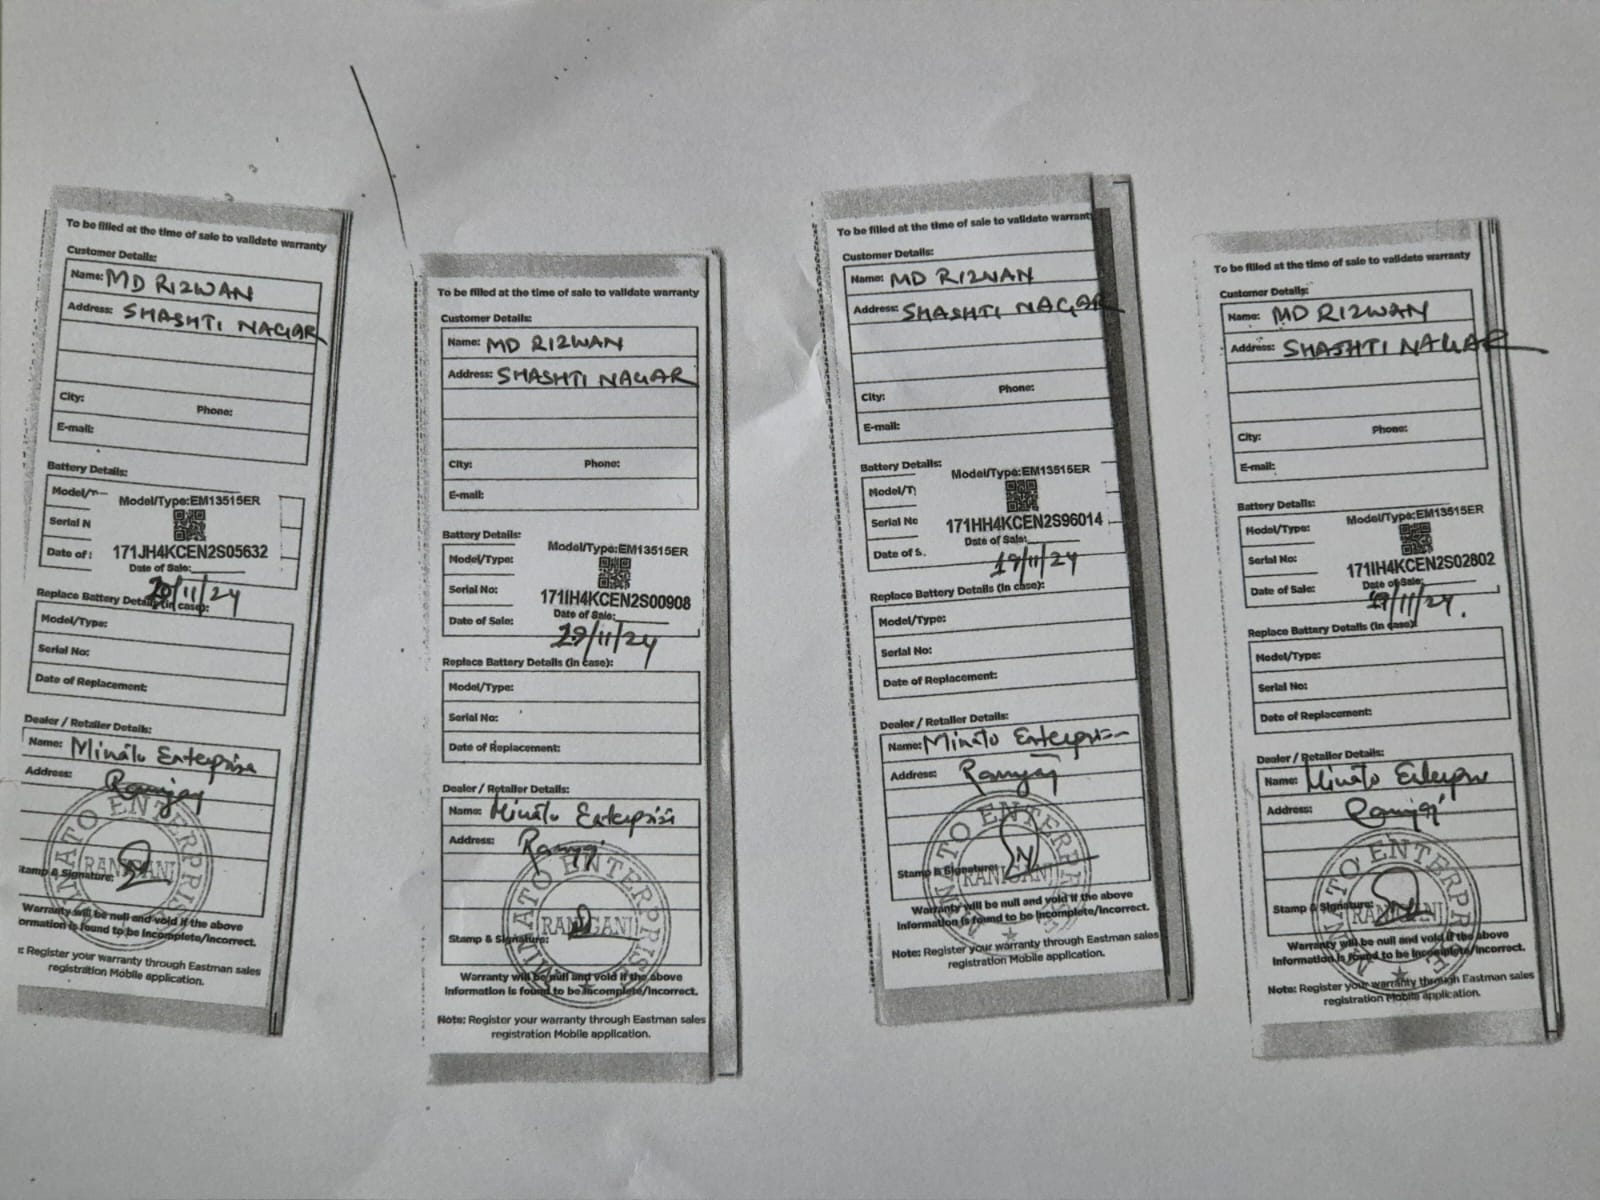 To be filled at the time of sale to validate warranty
Customer Details:
Name: MD RIZWAN
Address: SHASHTI NAGAR
City: Phone:
E-mail:
Battery Details:
Model/T
Model/Type:EM13515ER
Serial N
171JH4KCEN2S05632
Date of :
Date of Sale:
/11/24
Replace Battery Details (in case):
Model/Type:
Serial No:
Date of Replacement:
Dealer / Retailer Details:
Name: Minato Enterprise
Address: Raniganj
MINATO ENTERPRISE
RANIGANJ
Stamp & Signature:
Warranty will be null and void if the above
ormation is found to be incomplete/incorrect.
: Register your warranty through Eastman sales
registration Mobile application.
To be filled at the time of sale to validate warranty
Customer Details:
Name: MD RIZWAN
Address: SHASHTI NAGAR
City: Phone:
E-mail:
Battery Details:
Model/Type:
Model/Type:EM13515ER
Serial No:
171IH4KCEN2S00908
Date of Sale:
Date of Sale:
19/11/24
Replace Battery Details (in case):
Model/Type:
Serial No:
Date of Replacement:
Dealer / Retailer Details:
Name: Minato Enterprise
Address: Raniganj
MINATO ENTERPRISE
RANIGANJ
Stamp & Signature:
Warranty will be null and void if the above
information is found to be incomplete/incorrect.
Note: Register your warranty through Eastman sales
registration Mobile application.
To be filled at the time of sale to validate warranty
Customer Details:
Name: MD RIZWAN
Address: SHASHTI NAGAR
City: Phone:
E-mail:
Battery Details:
Model/T
Model/Type:EM13515ER
Serial No
171HH4KCEN2S96014
Date of S
Date of Sale:
19/11/24
Replace Battery Details (in case):
Model/Type:
Serial No:
Date of Replacement:
Dealer / Retailer Details:
Name: Minato Enterprise
Address: Raniganj
MINATO ENTERPRISE
RANIGANJ
Stamp & Signature:
Warranty will be null and void if the above
information is found to be incomplete/incorrect.
Note: Register your warranty through Eastman sales
registration Mobile application.
To be filled at the time of sale to validate warranty
Customer Details:
Name: MD RIZWAN
Address: SHASHTI NAGAR
City: Phone:
E-mail:
Battery Details:
Model/Type:
Model/Type:EM13515ER
Serial No:
171IH4KCEN2S02802
Date of Sale:
Date of Sale:
19/11/24.
Replace Battery Details (in case):
Model/Type:
Serial No:
Date of Replacement:
Dealer / Retailer Details:
Name: Minato Enterprise
Address: Raniganj
MINATO ENTERPRISE
RANIGANJ
Stamp & Signature:
Warranty will be null and void if the above
information is found to be incomplete/incorrect.
Note: Register your warranty through Eastman sales
registration Mobile application.